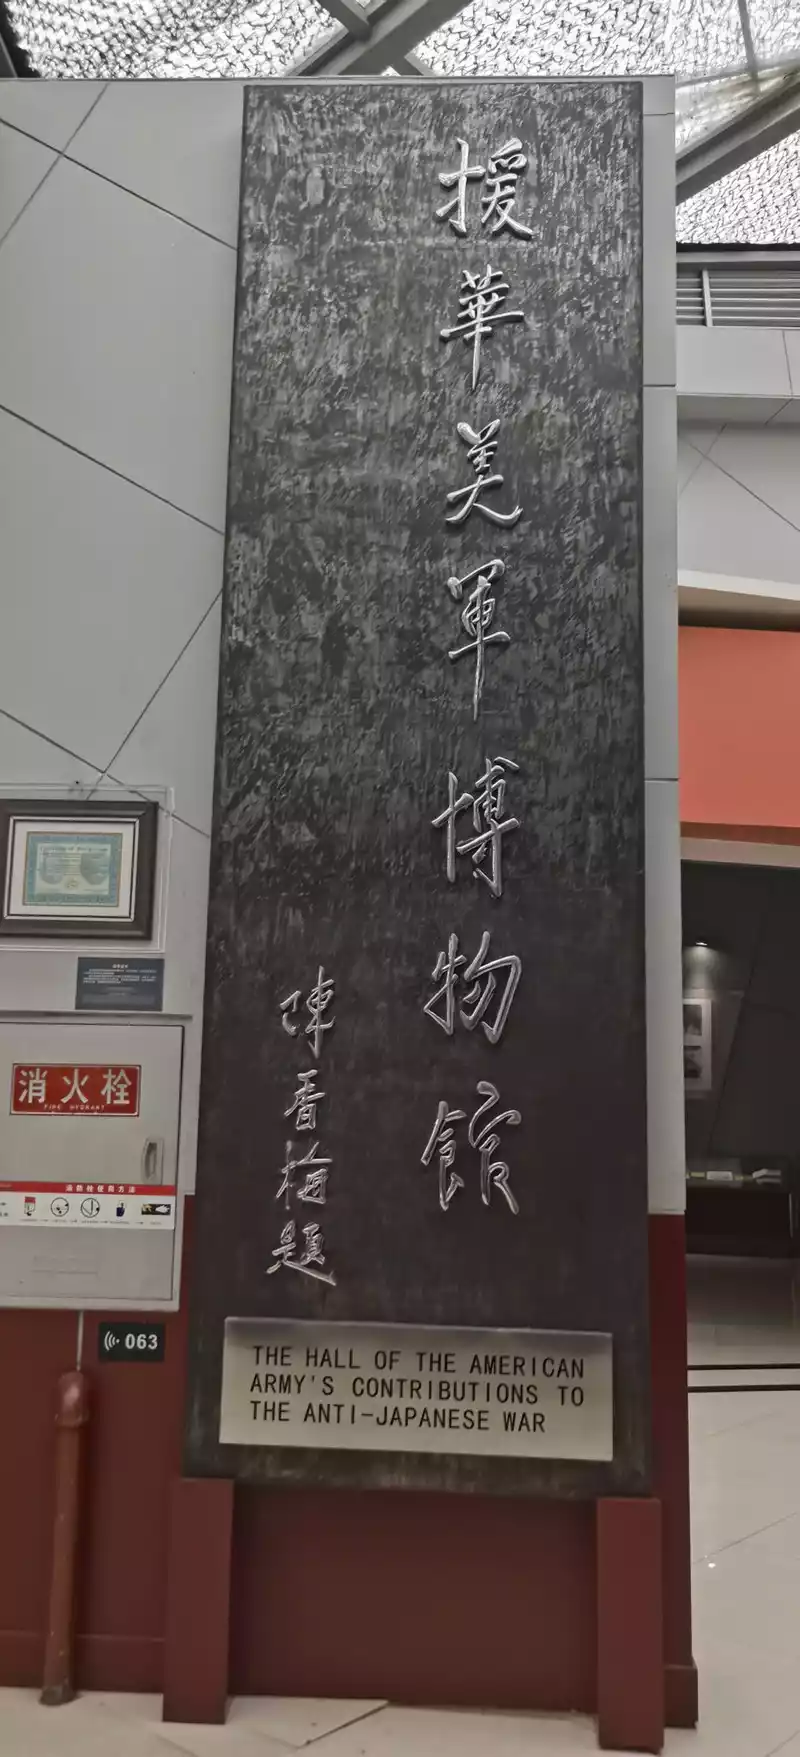 援華美軍博物館
陳香梅題
THE HALL OF THE AMERICAN
ARMY'S CONTRIBUTIONS TO
THE ANTI-JAPANESE WAR
消火栓
FIRE HYDRANT
消防栓使用方法
063